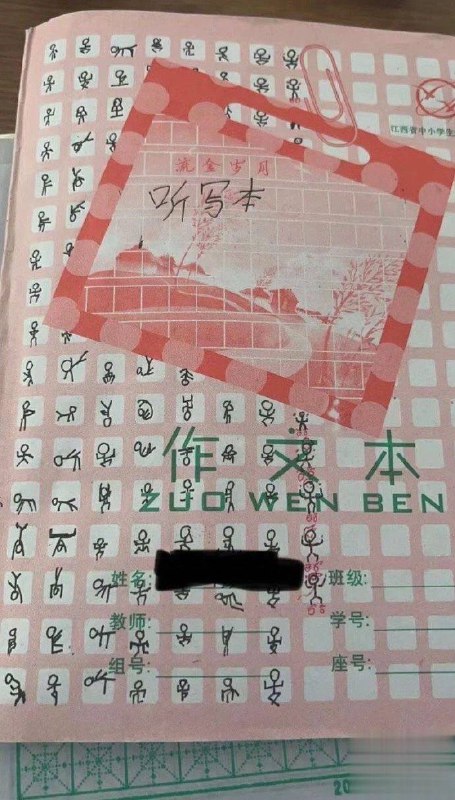 江西省中小学生
流金岁月
听写本
作文本
ZUO WEN BEN
姓名:
班级:
教师:
学号:
组号:
座号:
20